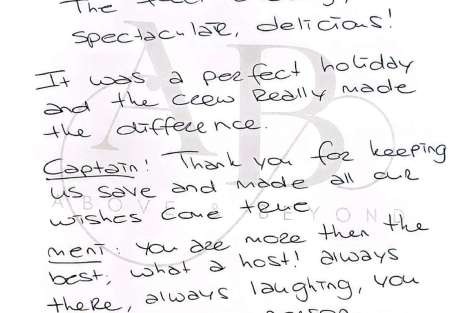 The
spectacular, delicious!
It was a perfect holiday
and the crew really made
the difference.
Captain! Thank you for keeping
us save and made all our
ABOVE & BEYOND
wishes come true
Meni: you are more then the
best, what a host! always
there, always laughing, you